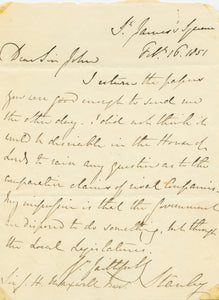 St James's Square
Feb. 16. 1851
Dear Sir John
I return the papers
you were good enough to send me
the other day. I did not think it
would be desirable in the House of
Lords to raise any question as to the
comparative claims of rival Companies.
My impression is that the Government
is disposed to do something, but through
the Local Legislatures.
Yrs faithfully
Stanley
Sir J. H. Maxwell